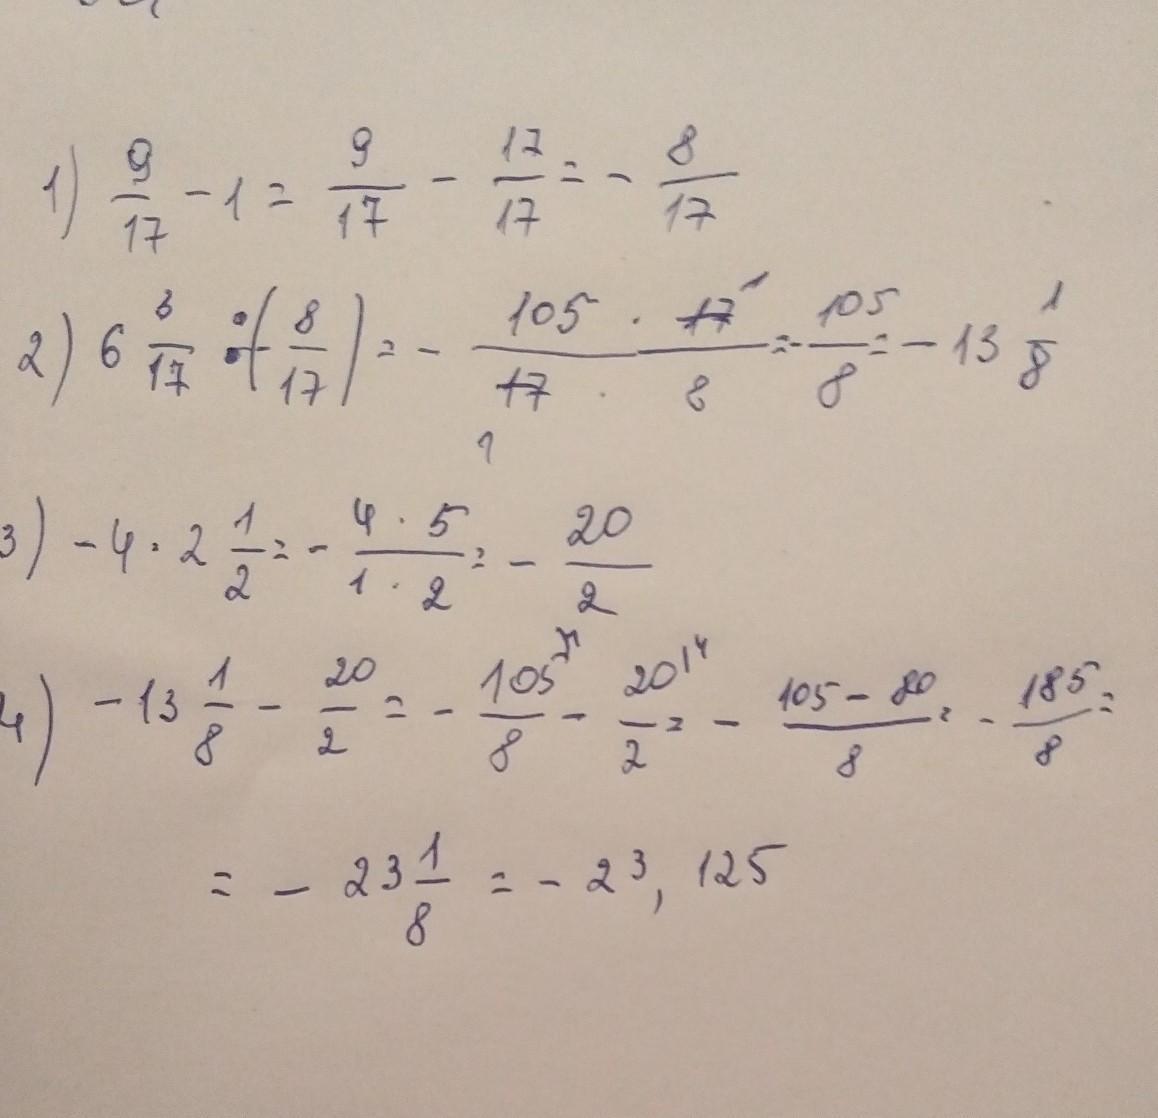 1) 9/17 - 1 = 9/17 - 17/17 = - 8/17
2) 6 3/17 : (- 8/17) = - 105 · 17¹ / 17 · 8 = - 105/8 = - 13 1/8
1
3) - 4 · 2 1/2 = - 4 · 5 / 1 · 2 = - 20/2
4) - 13 1/8 - 20/2 = - 105/8 - 20|4/2 = - 105 - 80 / 8 = - 185/8 =
= - 23 1/8 = - 23,125